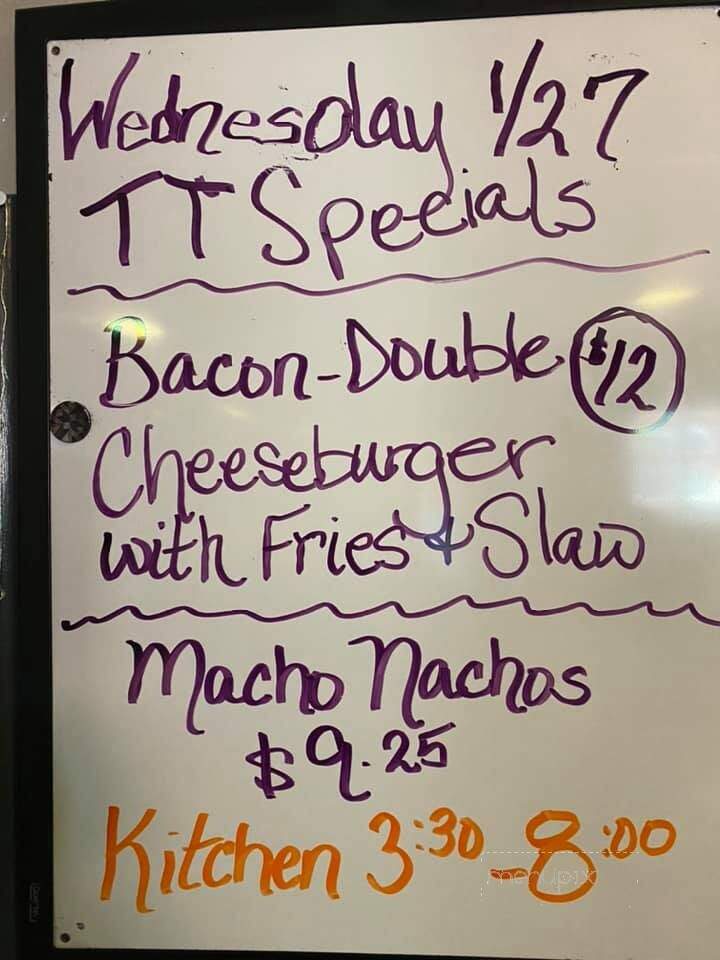 Wednesday 1/27
TT Specials
Bacon-Double $12
Cheeseburger
with Fries & Slaw
Macho Nachos
$9.25
Kitchen 3:30-8:00
menupix